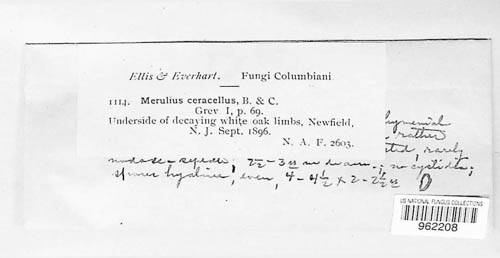 Ellis & Everhart. Fungi Columbiani
1114. Merulius ceracellus, B. & C.
Grev I, p. 69.
Underside of decaying white oak limbs, Newfield,
N. J. Sept. 1896.
N. A. F. 2603.
hymenial
rather
rarely
nodose-septate; 2½-3 in diam.; no cystidia;
spores hyaline, even, 4-4½ x 2-2½
US NATIONAL FUNGUS COLLECTIONS
962208